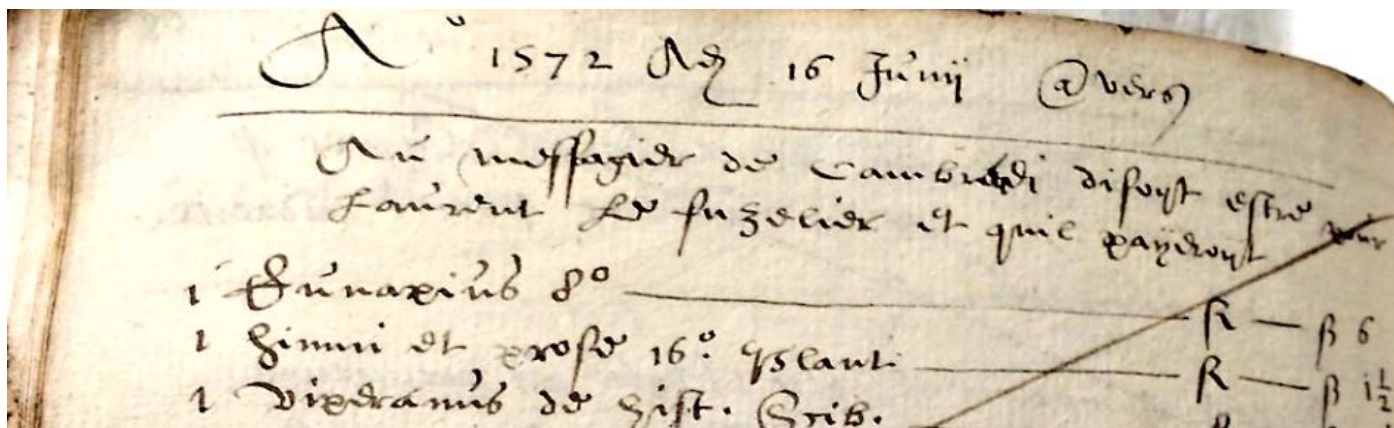 Aº 1572 Adj 16 Junij @vers
Au messagier de Cambrai disoyt estre pour
Laurent Le fuzelier et quil payeroyt
1 Eunapius 8º ſt ß 6
1 Himni et prose 16º. Plant. ſt ß 1½
1 Viperanus de Hist. Scib.